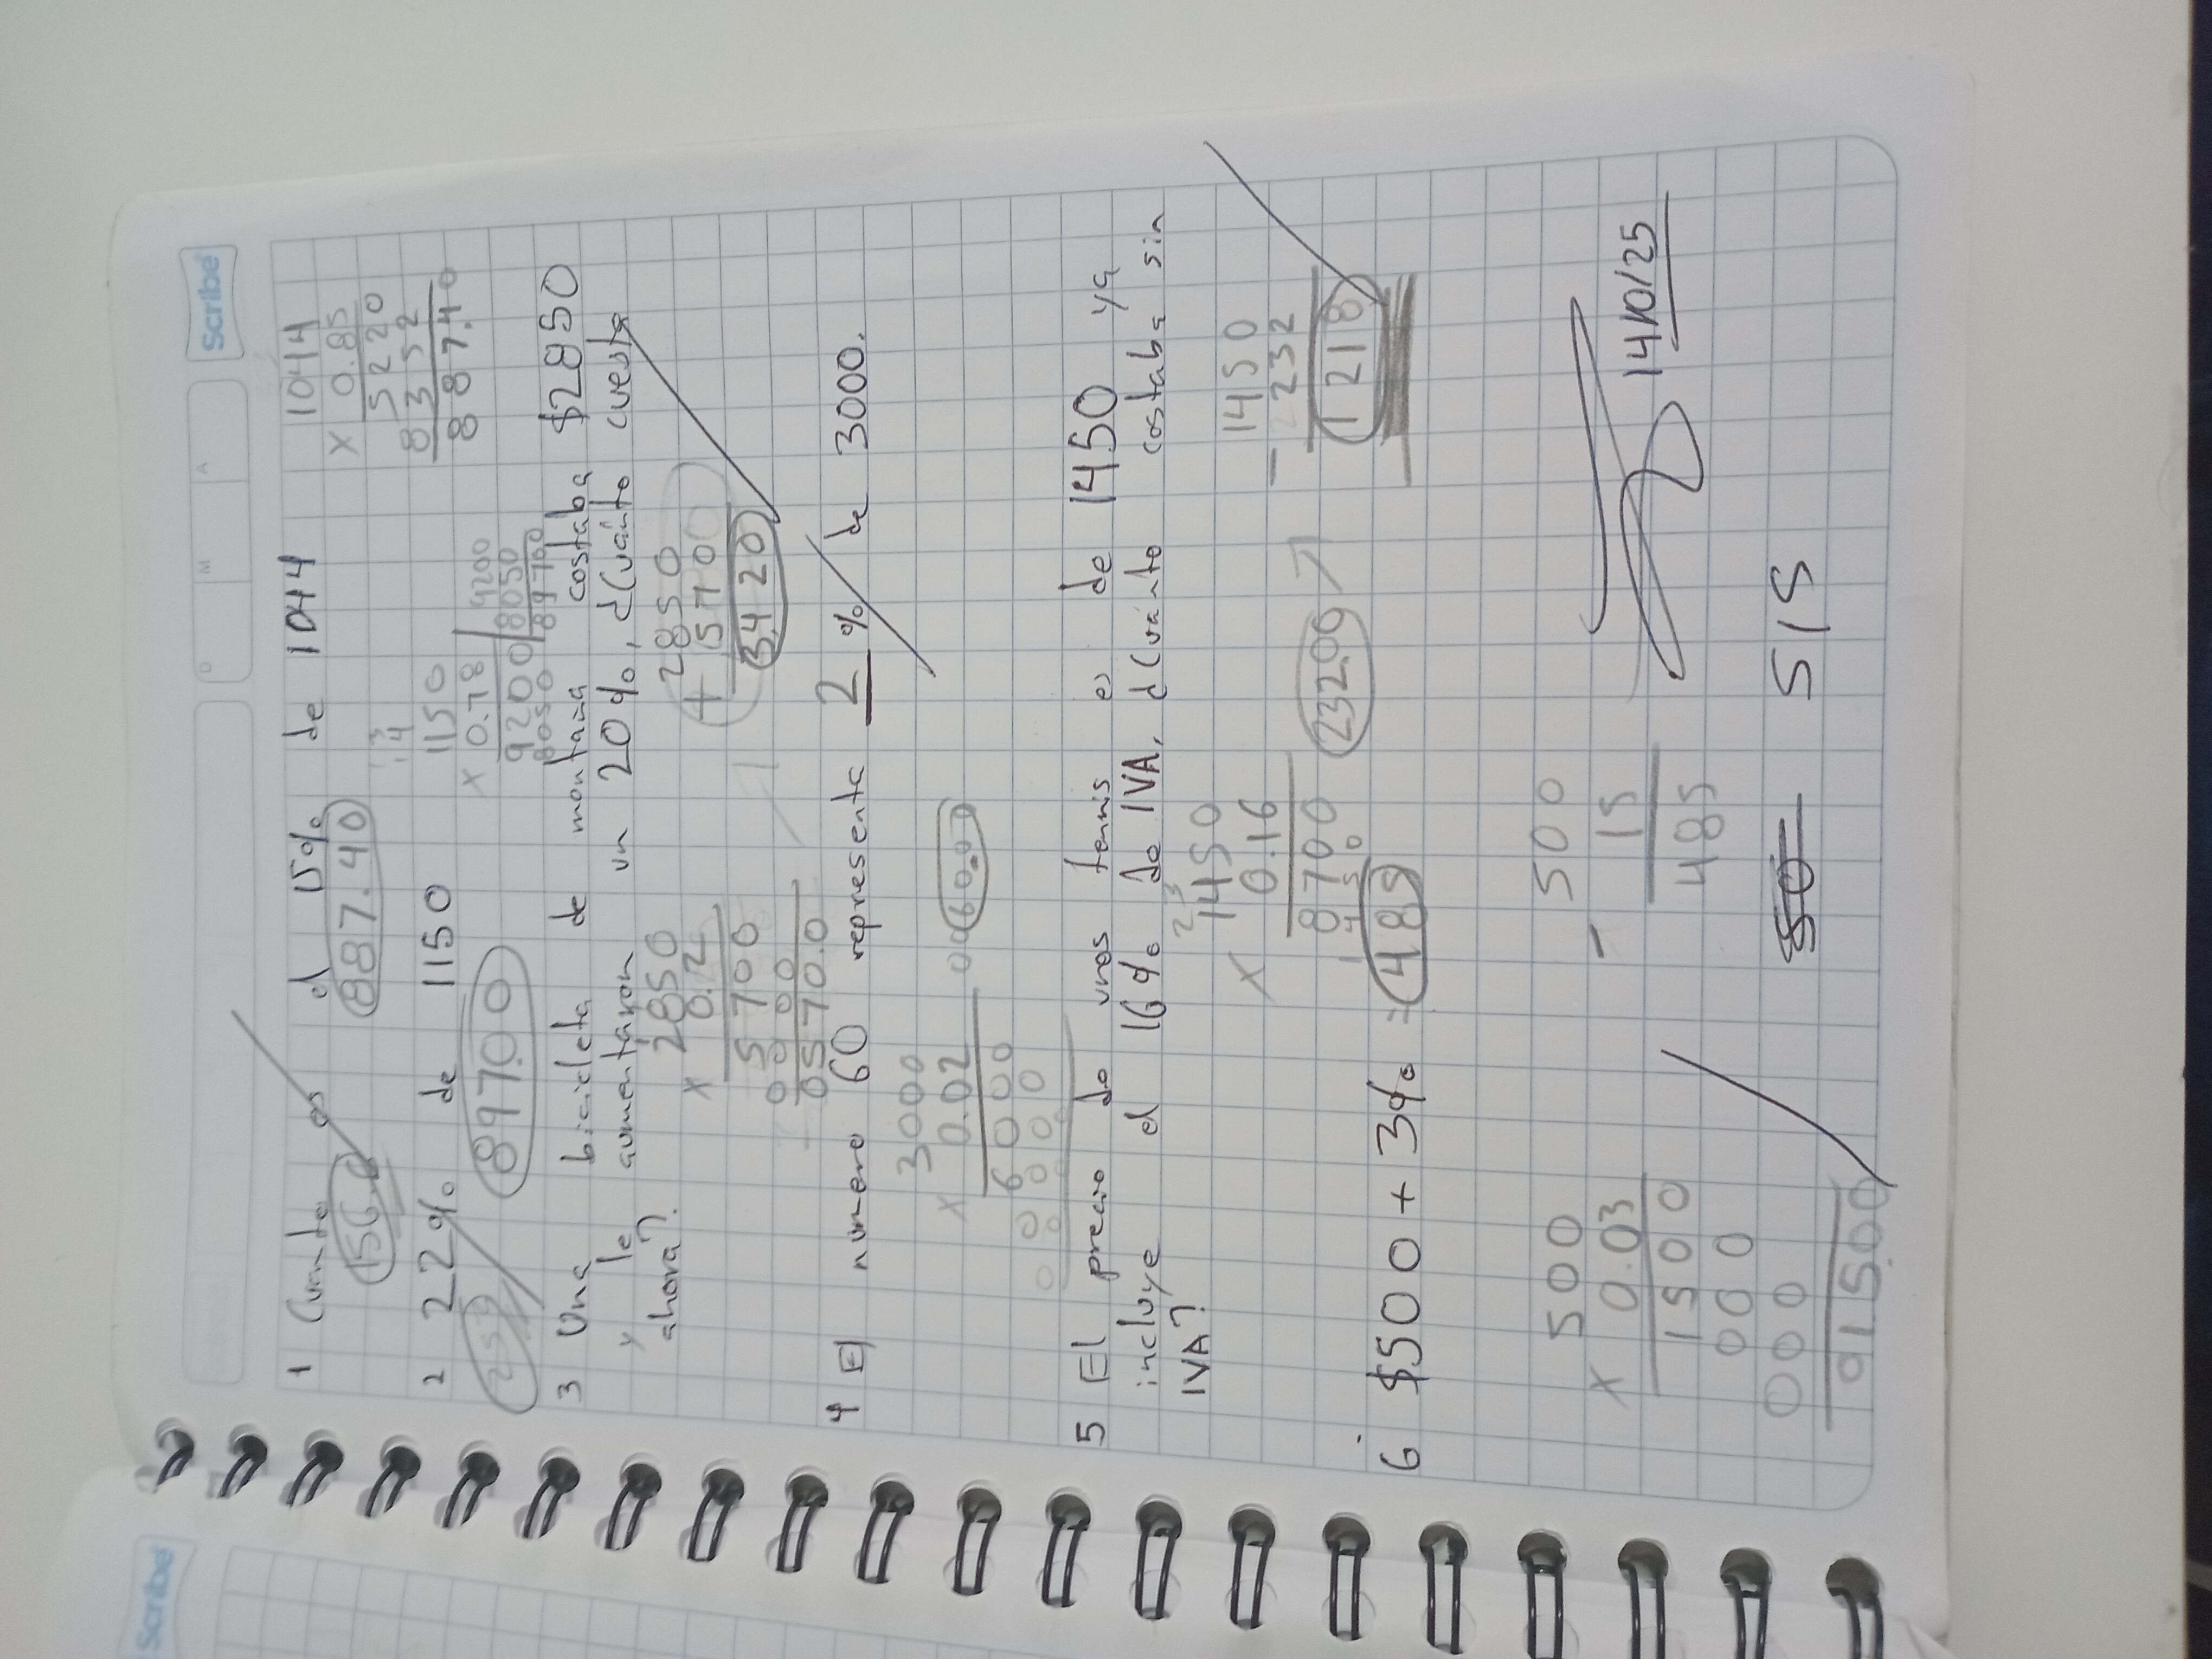 Scribe
D M A
1 Cuanto es el 15% de 1044
156.6 887.40
1044
x 0.85
5220
8352
887.40
2 22% de 1150
253 897.00
1150
x 0.78
9200
8050
9200
8050
897.00
3 Una bicicleta de montaña costaba $2850
y le aumentaron un 20%, ¿Cuánto cuesta
ahora?.
2850
x 0.2
5700
0000
0570.0
2850
+ 570.0
3,420
4 El numero 60 representa 2 % de 3000.
3000
x 0.02
6000
0000
0060.00
5 El precio de unos tennis es de 1450 ya
incluye el 16% de IVA, ¿Cuánto costaba sin
IVA?
1450
x 0.16
8700
1450
232.00
1450
- 232
1218
6. $500 + 3% = 485
500
x 0.03
1500
000
000
015.00
500
- 15
485
515
14/10/25
Scribe